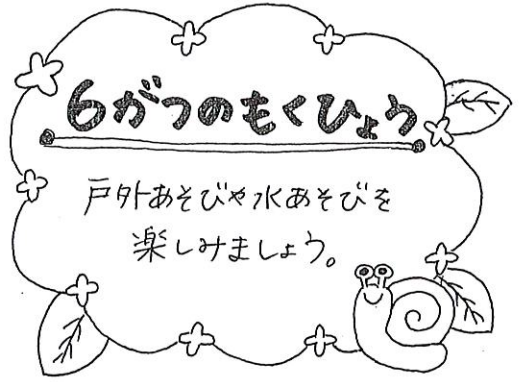 6がつのもくひょう
戸外あそびや水あそびを
楽しみましょう。